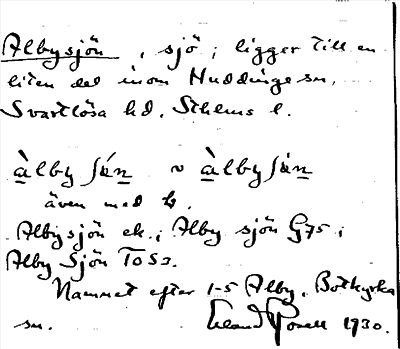 Albysjön, sjö; ligger till en
liten del inom Huddinge sn,
Svartlösa hd, Sthlms l.
àlbyſǻn ~ àlbyſån
även med b.
Albysjön ek.; Alby sjön G75;
Alby Sjön TOS3.
Namnet efter 1-5 Alby, Botkyrka
sn. Erland Rosell 1930.